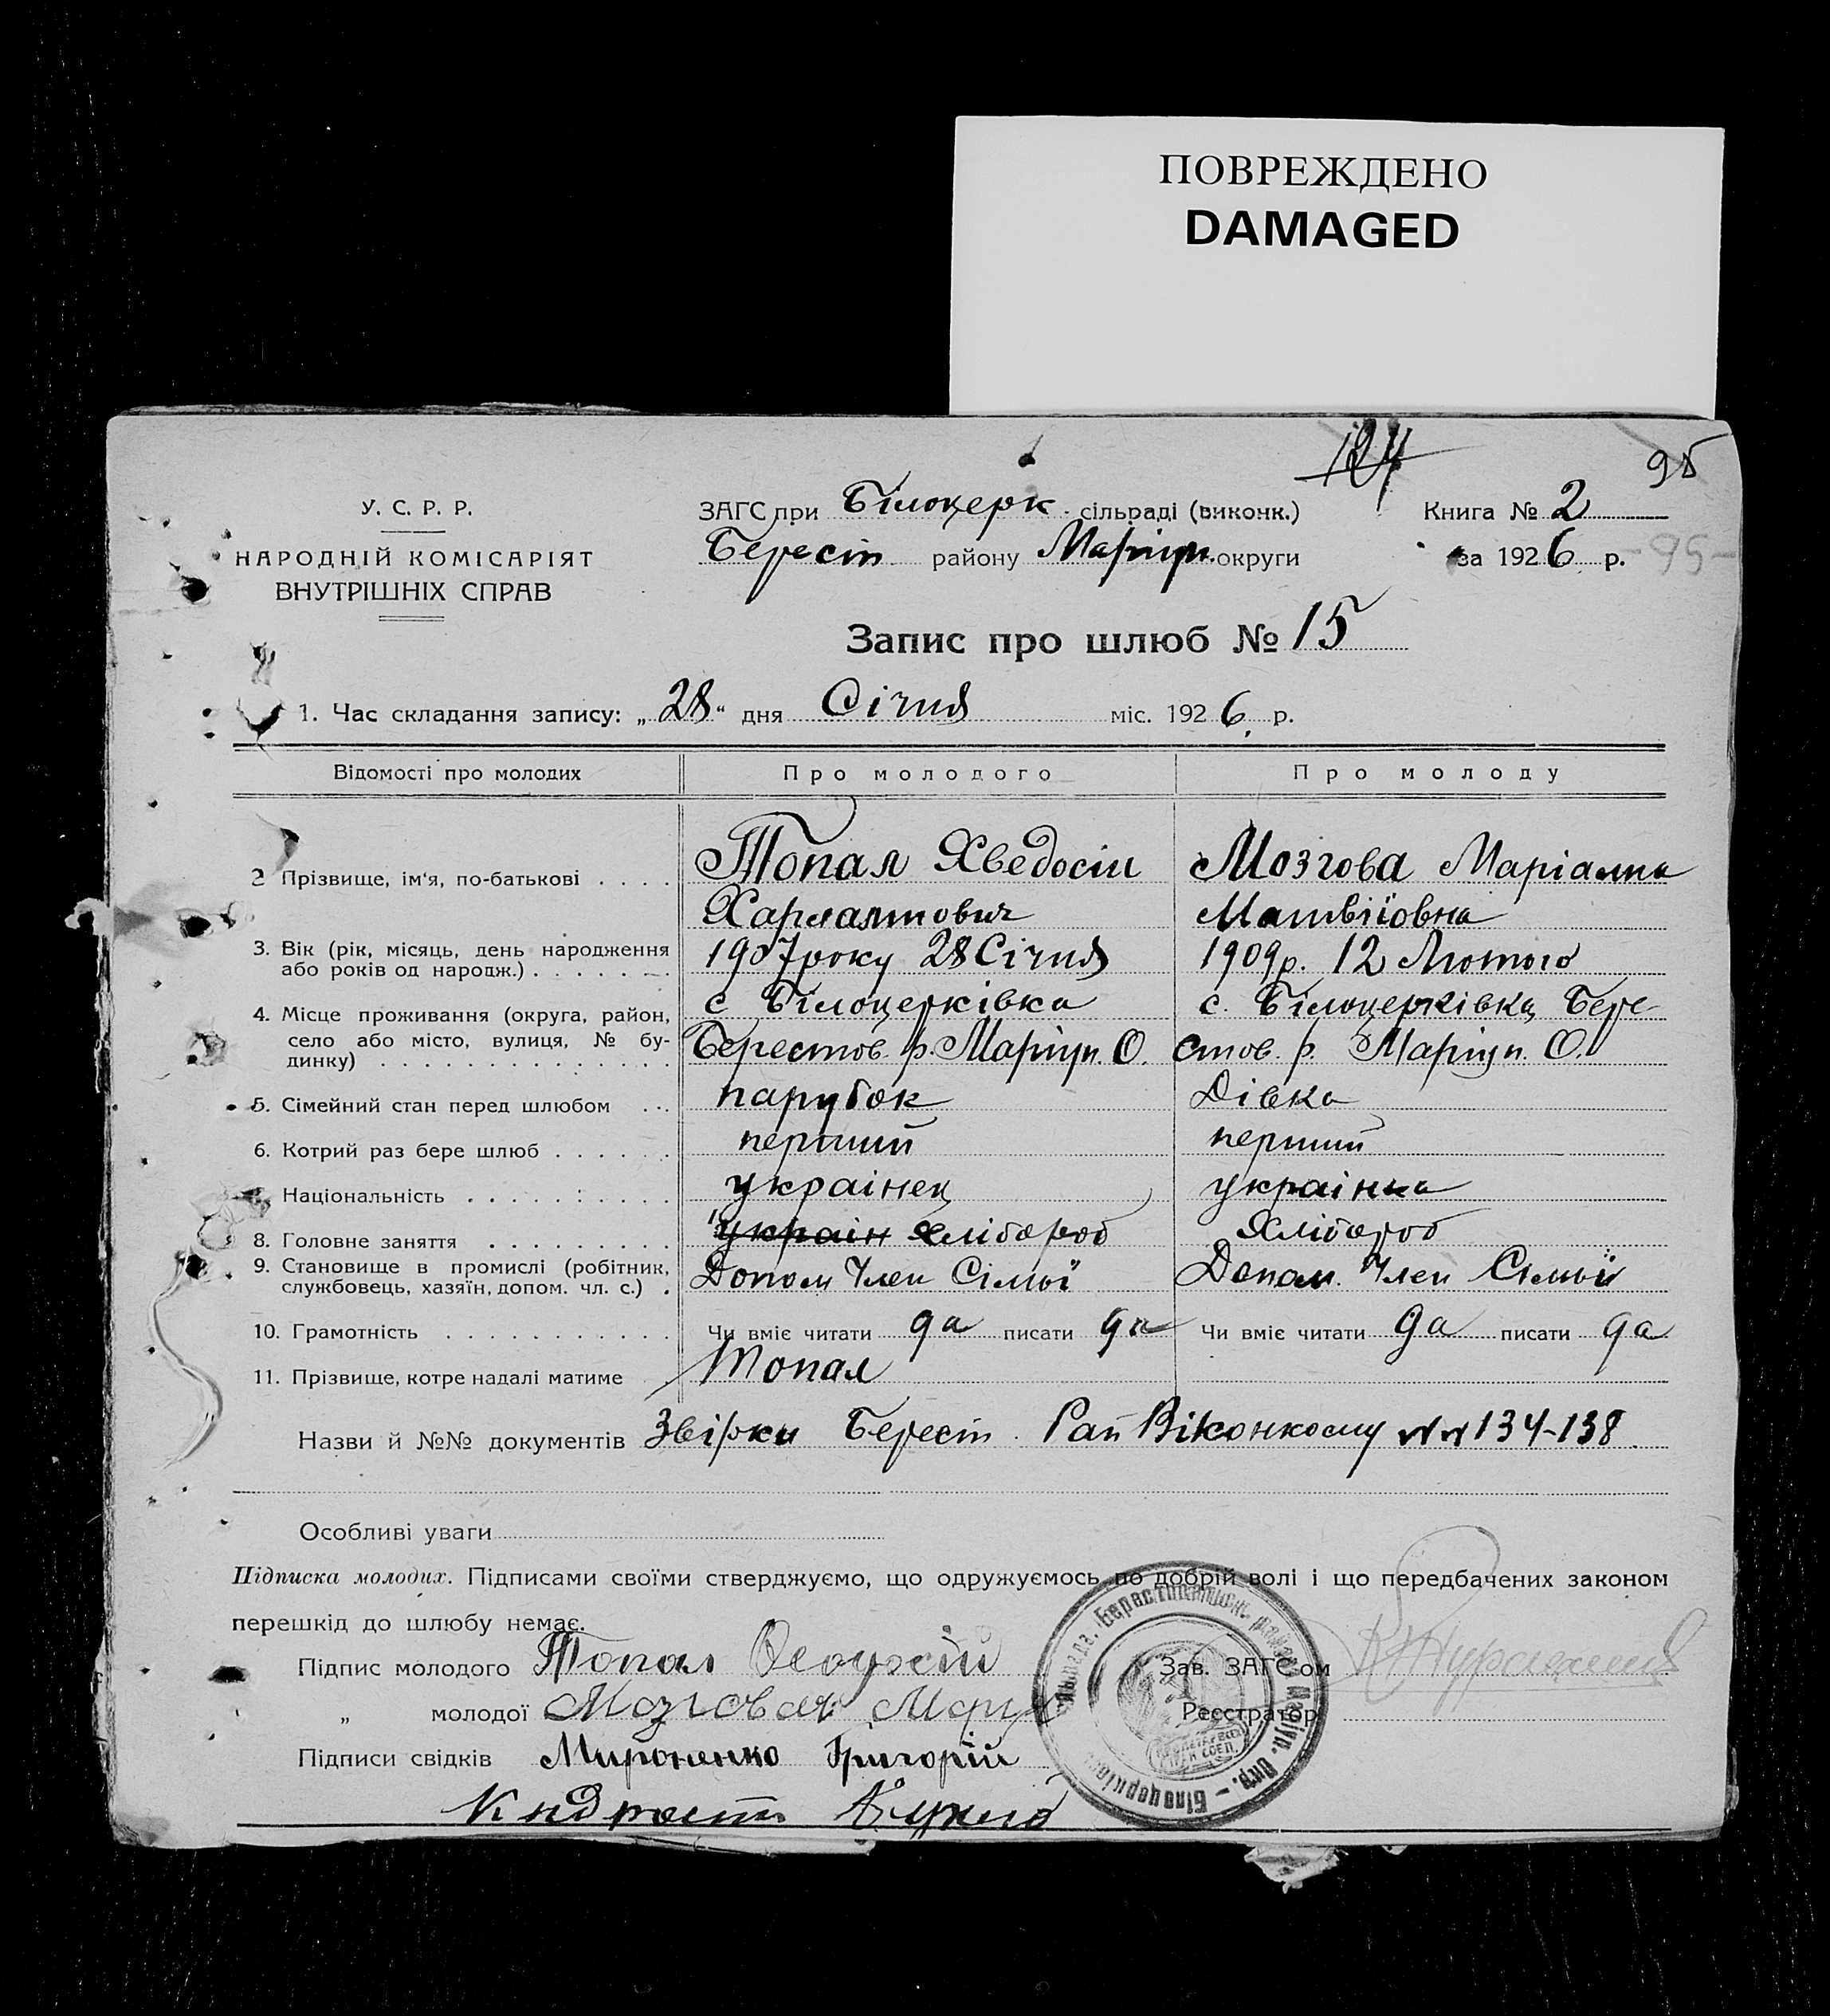 ПОВРЕЖДЕНО
DAMAGED
124
95
У. С. Р. Р.
НАРОДНІЙ КОМІСАРІЯТ
ВНУТРІШНІХ СПРАВ
ЗАГС при Білоцерк. сільраді (виконк.)
Берест району Маріуп. округи
Книга № 2
за 1926 р. -95-
Запис про шлюб № 15
1. Час складання запису: „28“ дня Січня міс. 1926 р.
Відомості про молодих Про молодого Про молоду
2 Прізвище, ім‘я, по-батькові . . . . Топал Хведосій Мозгова Маріамна
Харлампович Матвіїовна
3. Вік (рік, місяць, день народження 1907 року 28 Січня 1909 р. 12 Лютого
або років од народж.) . . . . . . .
4. Місце проживання (округа, район, с Білоцерківка с. Білоцерківка, Бере-
село або місто, вулиця, № бу- Берестов. р. Маріуп. О. стов. р. Маріуп. О.
динку) . . . . . . . . . . . . . .
5. Сімейний стан перед шлюбом . . . парубок Дівка
6. Котрий раз бере шлюб . . . . . . перший перший
Національність . . . . . . . . . . українец українка
8. Головне заняття . . . . . . . . . україн хлібороб Хлібороб
9. Становище в промислі (робітник, Допом Член Сімьї Допом. Член Сімьї
службовець, хазяїн, допом. чл. с.) .
10. Грамотність . . . . . . . . . . . Чи вміє читати да писати да Чи вміє читати да писати да
11. Прізвище, котре надалі матиме Топал
Назви й №№ документів Звірки Берест. Рай Віконкому №№ 134-138
Особливі уваги
Підписка молодих. Підписами своїми стверджуємо, що одружуємось по добрій волі і що передбачених законом
перешкід до шлюбу немає.
Підпис молодого Топал Зав. ЗАГС‘ом
„ молодої Мозговая Мария Реєстратор
Підписи свідків Мироненко Григорій